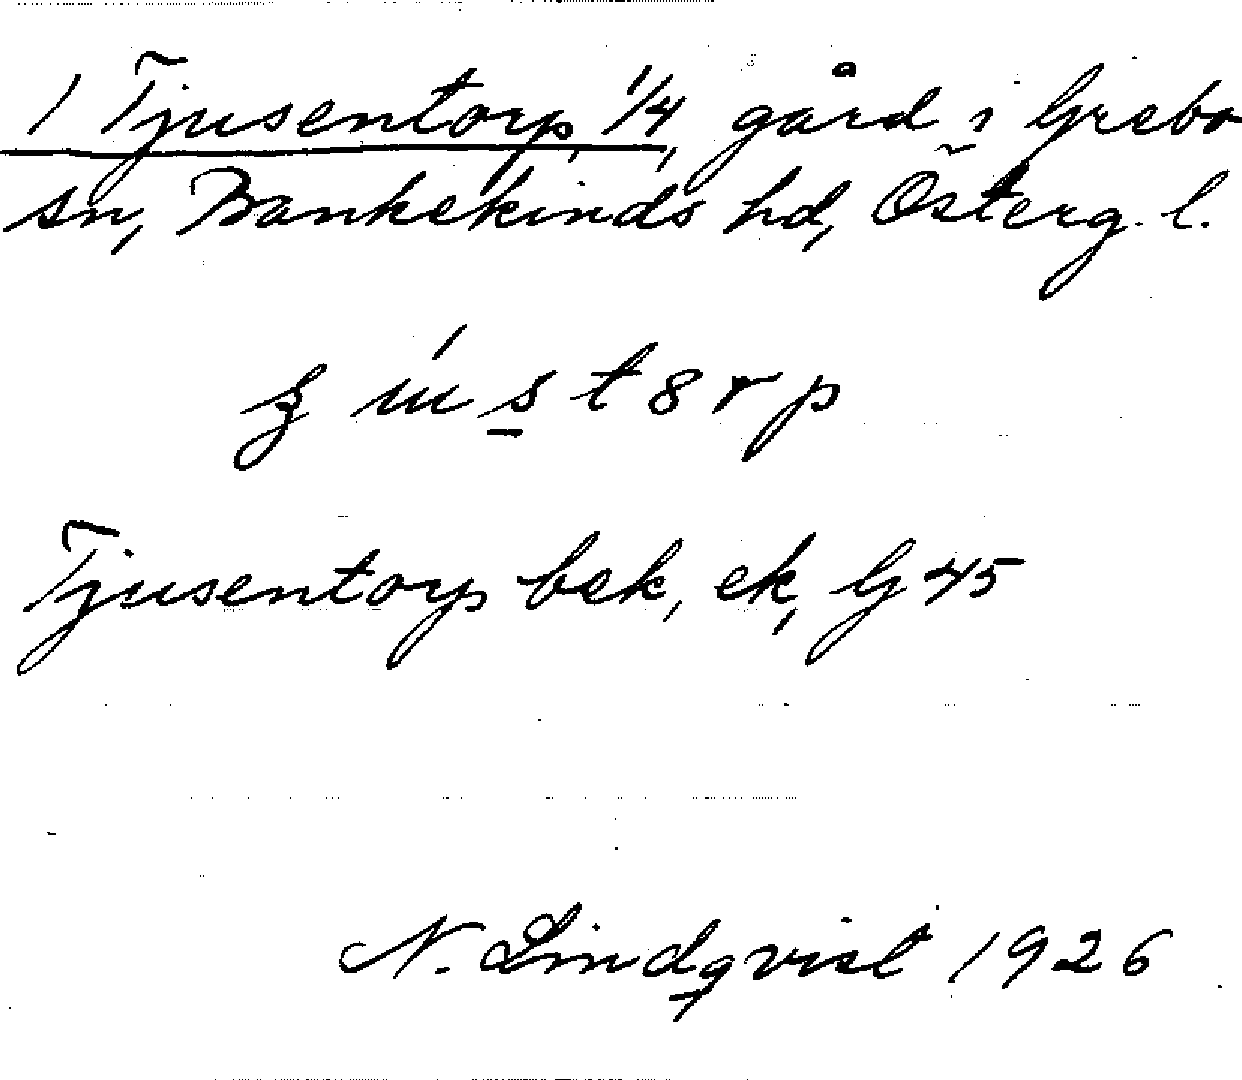 1 Tjusentorp, 1/4, gård i Grebo
sn, Bankekinds hd, Österg. l.
Tjusentorp bek, ek, G 45
N. Lindqvist 1926